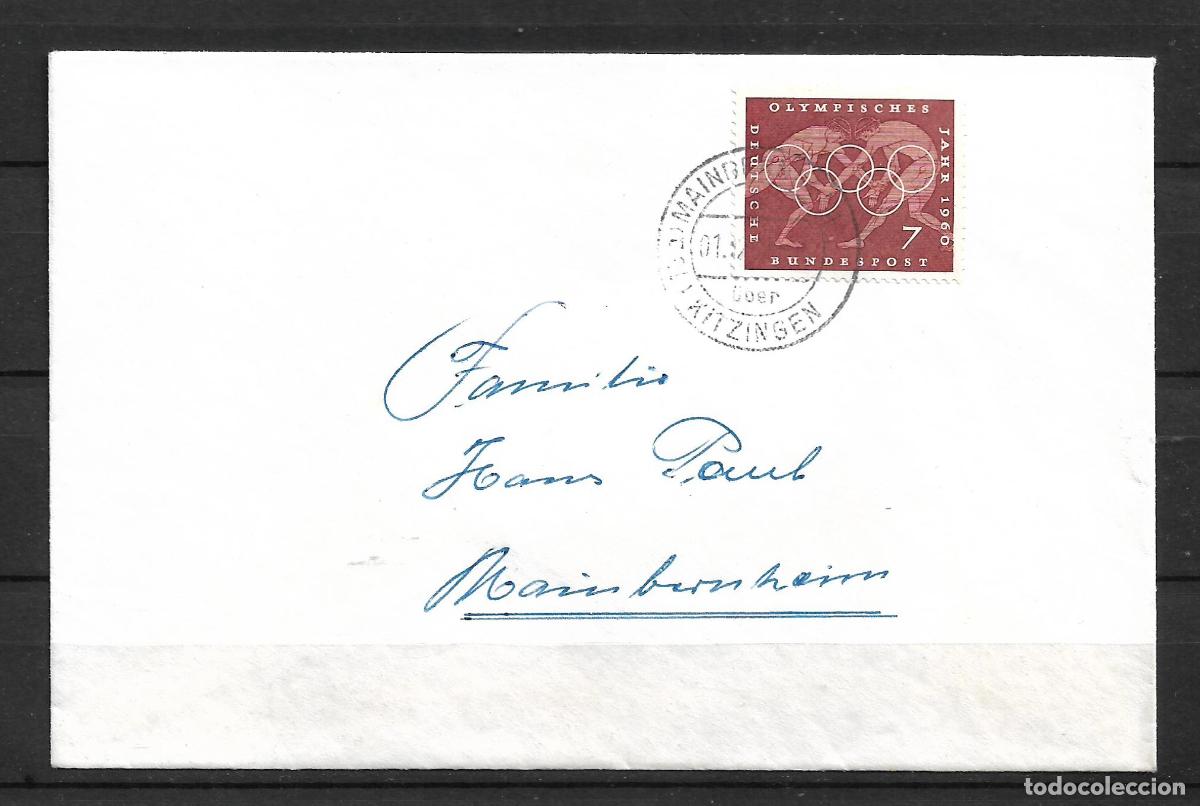 OLYMPISCHES
JAHR 1960
DEUTSCHE
BUNDESPOST
7
01.
über
KITZINGEN
Familie
Hans Paul
Mainbernheim
todocoleccion